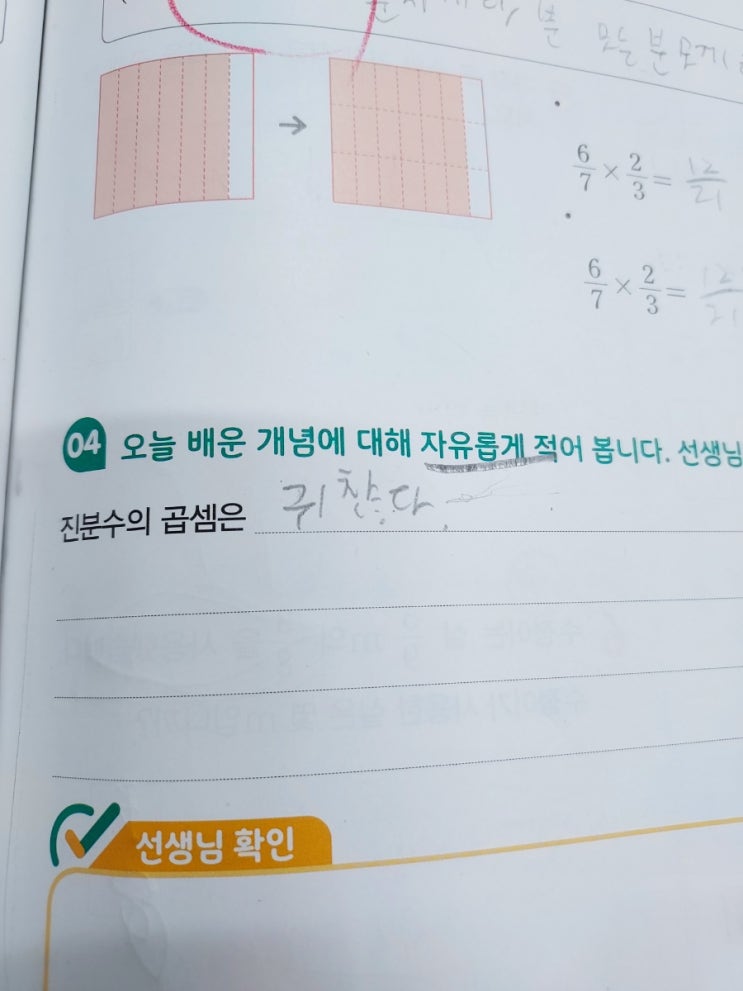 모든 분모에
6/7 × 2/3 = 12/21
6/7 × 2/3 = 12/21
04 오늘 배운 개념에 대해 자유롭게 적어 봅니다. 선생님
진분수의 곱셈은 귀찮다.
선생님 확인